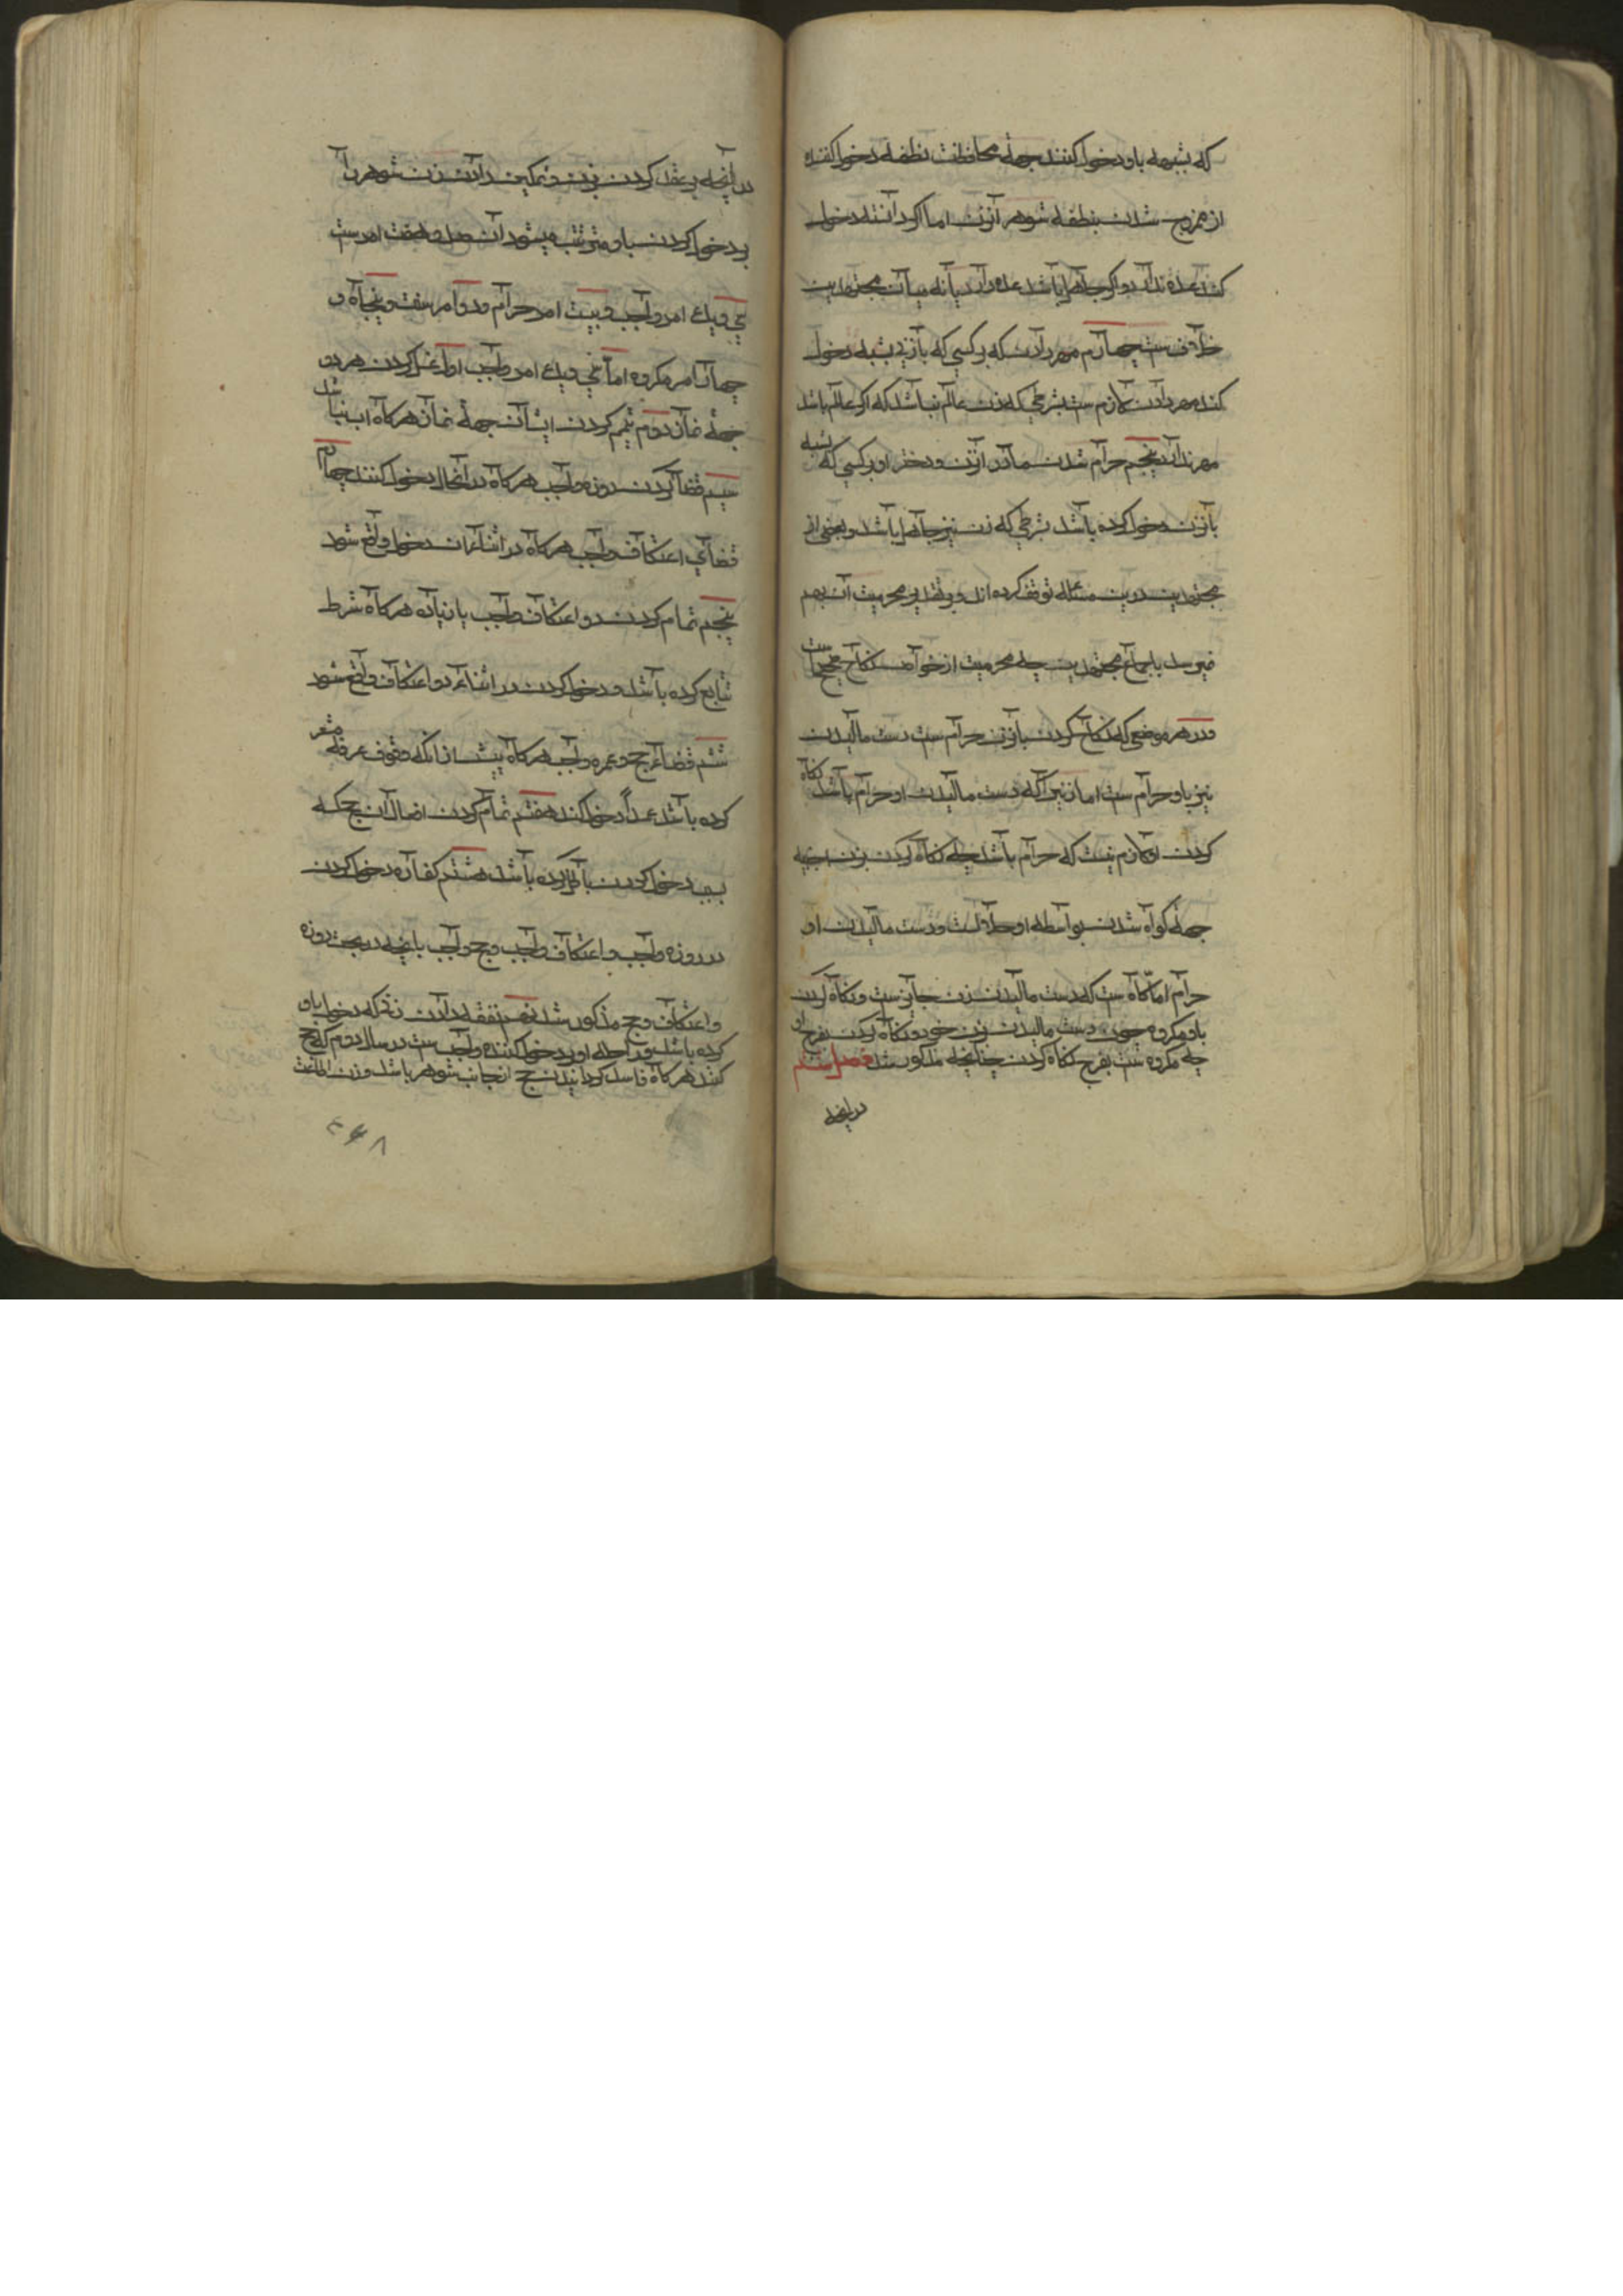 که بشبهه باو دخول کنند جهة محافظت نطفه دخول کننده
از ممزوج شدن بنطفه شوهر آنزن اما اکر دانسته دخول
کند عده ندارد و اکر جاهل باشد عده دارد یا نه میان مجتهدین
خلاف ست چهارم مهر دادن که بر کسی که بازنی بشبه دخول
کند مهر دادن لازم ست بشرطی که زن عالم نباشد که اکر عالم باشد
مهر ندارد پنجم حرام شدن مادر انزن و دختر او بر کسی که بشبه
بانزن دخول کرده باشد بشرطی که زن نیز جاهل باشد و بعضی از
مجتهدین درین مسئله توقف کرده اند و بر تقدیر محرمیت آن بهم
نمیرسد باجماع مجتهدین چه محرمیت از خواص نکاح صحیح است
و در هر موضعی که نکاح کردن بازن حرام ست دست مالیدن
نیز باو حرام ست اما نه نیز آنکه دست مالیدن او حرام باشد نکاه
کردن او لازم نیست که حرام باشد چه نکاه کردن بزن اجنبیه
جهة کواه شدن بواسطه او حلالست و دست مالیدن او
حرام اما کاه ست که دست مالیدن زن جایز ست و نکاه کردن
باو مکروه چون دست مالیدن بزن خود و نکاه کردن بفرج او
چه مکروه ست بفرج نکاه کردن چنانچه مذکور شد فصل ششم
در آنچه
در آنچه بر عقد کردن بزن و تمکین دادن زن شوهر را
بر دخول کردن باو مترتب میشود آن صد و هفت امرست
سی و یک امر واجب و بیست امر حرام و دو امر سنت و پنجاه و
چهار امر مکروه اما سی و یک امر واجب اول غسل کردن هر دو
جهة نماز دوم تیمم کردن ایشان جهة نماز هرکاه اب نباشد
سیم قضا کردن روزه واجب هرکاه در آنحال دخول کنند چهارم
قضای اعتکاف واجب هرکاه در اثناء ان دخول واقع شود
پنجم تمام کردن دو اعتکاف واجب یا زیاده هرکاه شرط
تتابع کرده باشد و دخول کردن در اثناء دو اعتکاف واقع شود
ششم قضاء حج و عمره واجب هرکاه پیش از انکه وقوف عرفه مشعر
کرده باشد عمداً دخول کند هفتم تمام کردن افعال ان حج که
بسبب دخول کردن باطل کرده باشد هشتم کفاره دخول کردن
در روزه واجب و اعتکاف واجب و حج واجب بانچه در بحث روزه
و اعتکاف و حج مذکور شد نهم نفقه دادن زنی که دخول باو
کرده باشد و راحله او بر دخول کننده واجب ست در سال دوم که حج
کنند هرکاه فاسد کردانیدن حج از جانب شوهر باشد و زن اطاعت